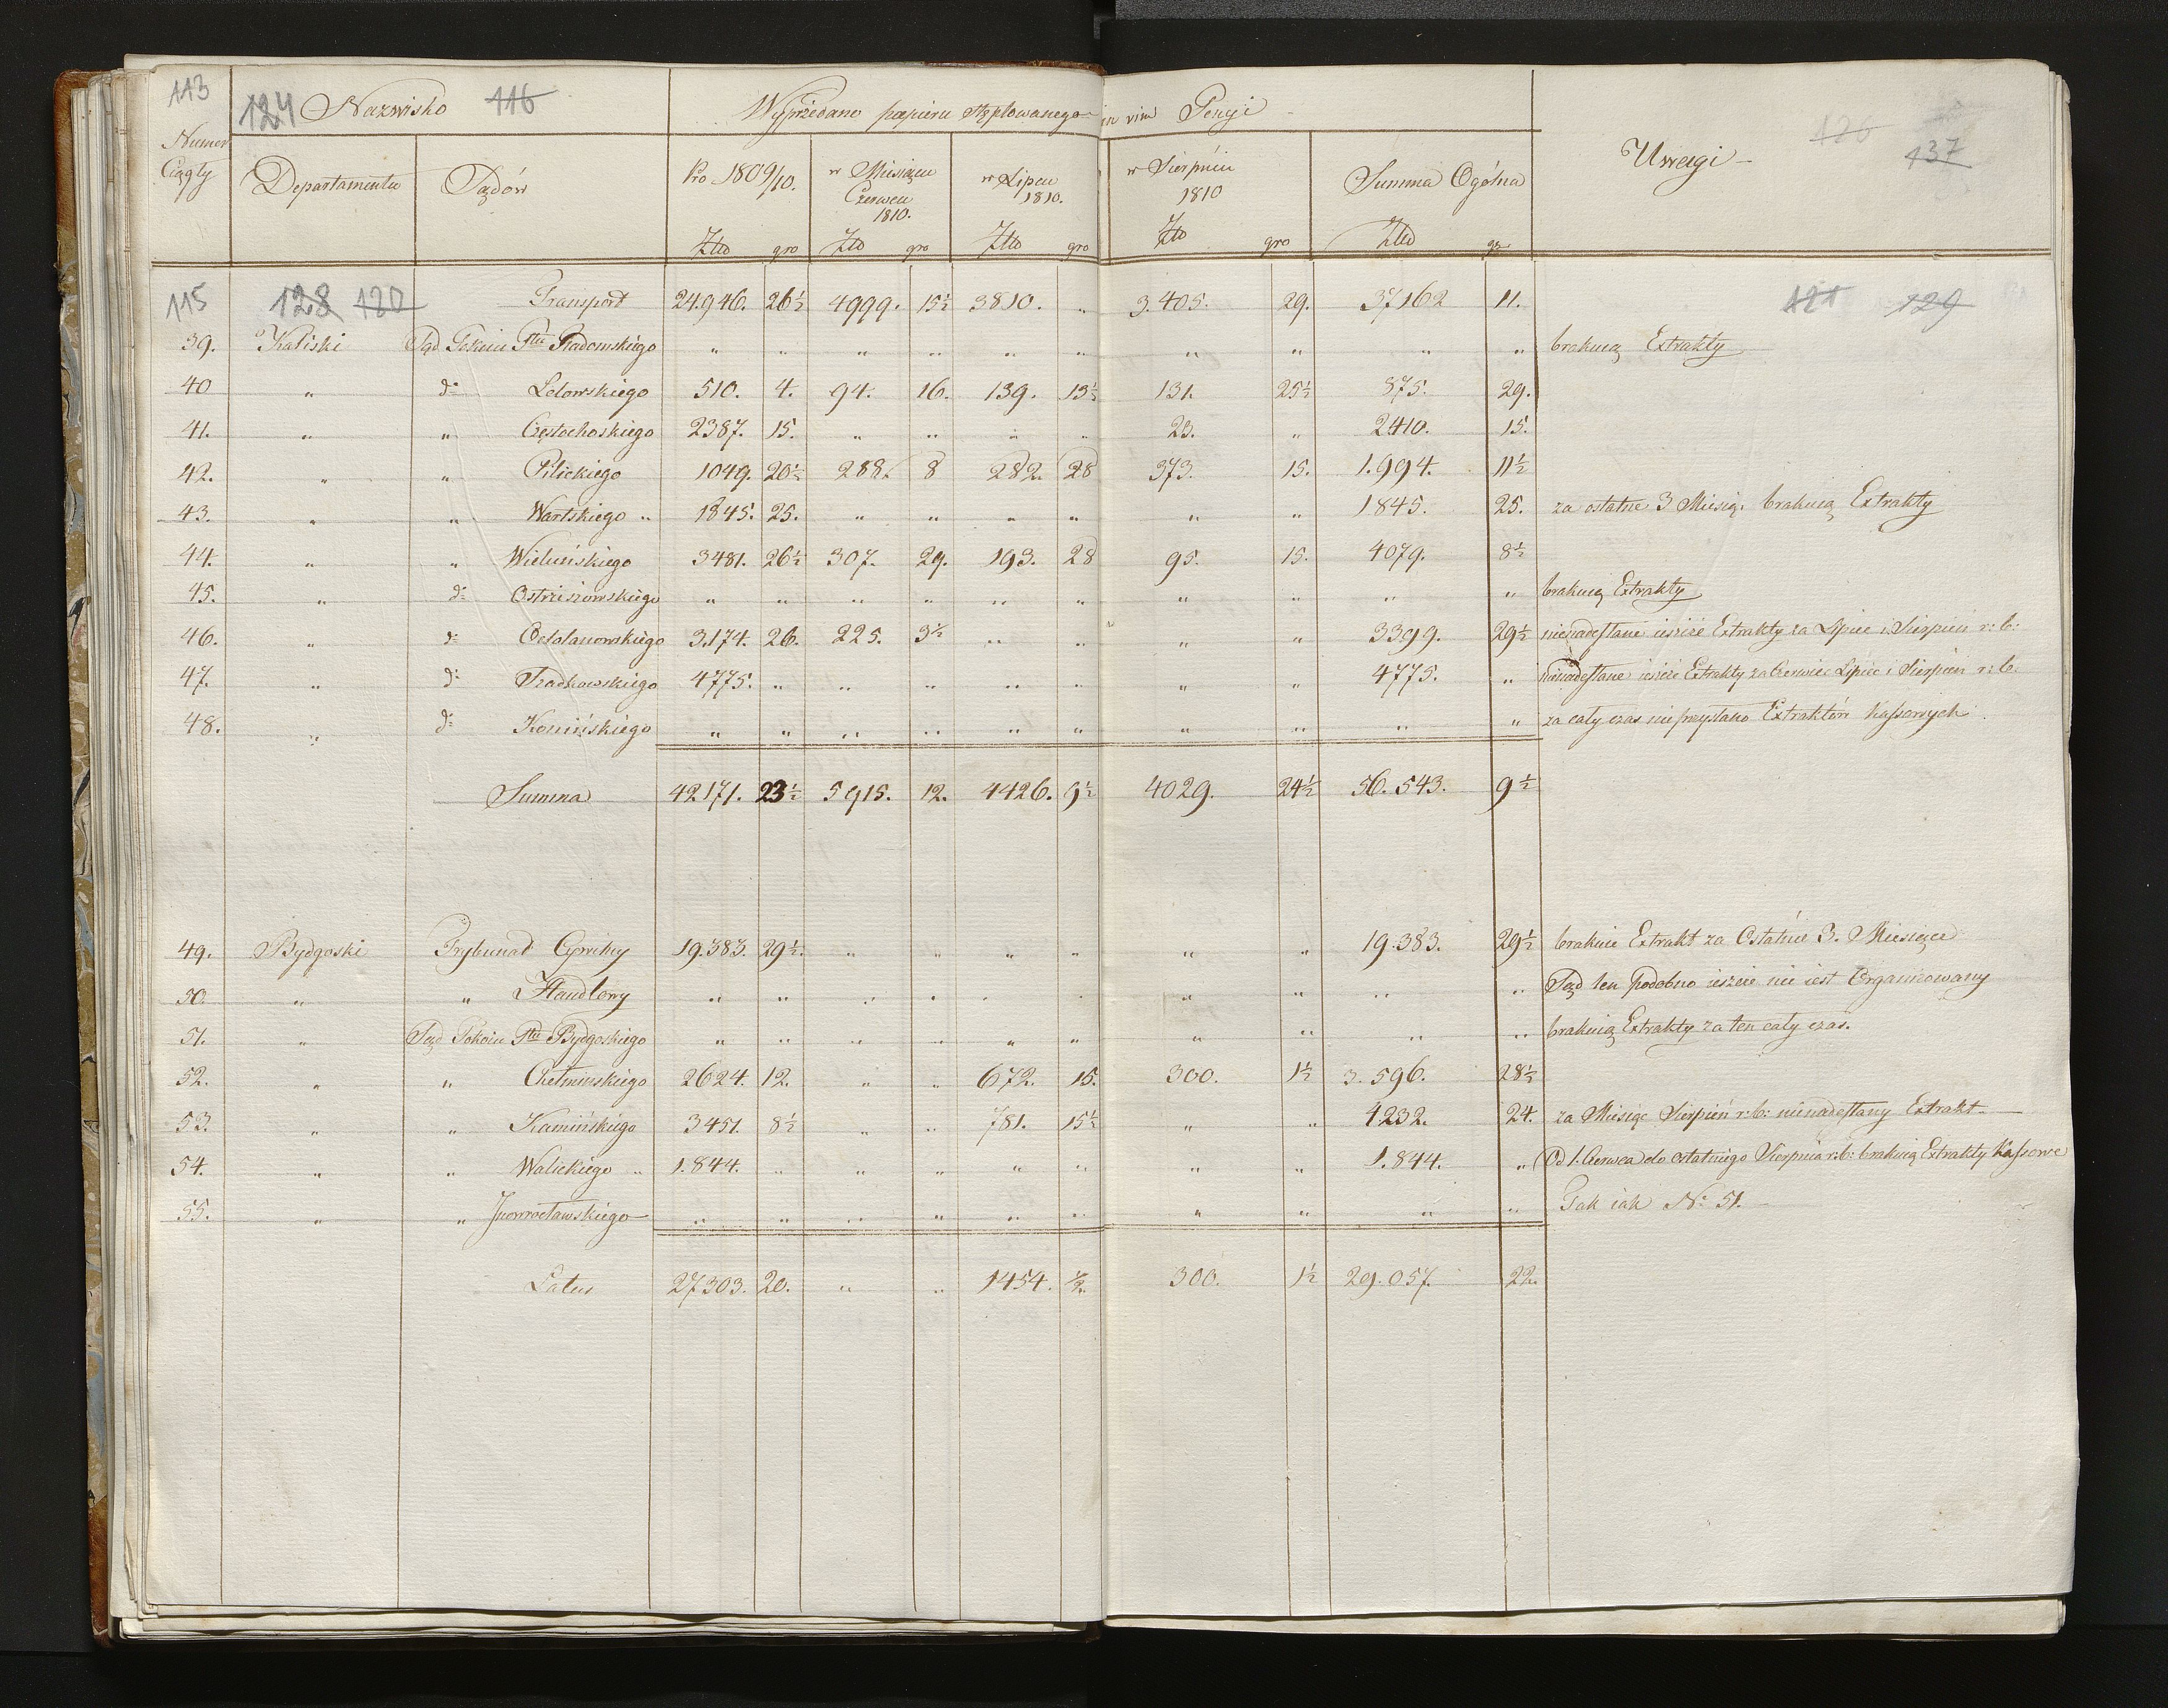 113 124 Nazwisko 116 Wyprzedano papieru stęplowanego in vim Pensyi
Numer Ciągły Departamentu Sądów Pro 1809/10. w Miesiącu Czerwcu 1810. w Lipcu 1810. w Sierpniu 1810 Summa Ogólna Uwagi 126 137
Złto gro Złto gro Złto gro Złto gro Złto gr
115 128 120 Transport 24.946. 26½ 4999. 15½ 3810. „ 3.405. 29. 37162 11. 121 129
39. Kaliski Sąd Pokoiu Ptu Radomskiego „ „ „ „ „ „ „ „ „ „ brakuią Extrakty
40 „ do Lelowskiego 510. 4. 94. 16. 139. 13½ 131. 25½ 875. 29.
41. „ „ Częstochoskiego 2387. 15. „ „ „ „ 23. „ 2410. 15.
42. „ „ Pilickiego 1049. 20½ 288. 8 282. 28 373. 15. 1.994. 11½
43. „ „ Wartskiego „ 1845. 25. „ „ „ „ „ „ 1845. 25. za ostatne 3 Miesią. brakuią Extrakty
44. „ „ Wieluńskiego 3481. 26½ 307. 29. 193. 28 95. 15. 4079. 8½
45. „ do Ostrzeszowskiego „ „ „ „ „ „ „ „ „ „ brakuią Extrakty
46. „ do Odolanowskiego 3.174. 26. 225. 3½ „ „ „ „ 3399. 29½ nienadesłane ieszcze Extrakty za Lipiec i Sierpień r: b:
47. „ do Sradkowskiego 4775. „ „ „ „ „ „ „ 4775. „ nienadesłane ieszcze Extrakty za Czerwiec Lipiec i Sierpień r: b.
48. „ do Konińskiego „ „ „ „ „ „ „ „ „ „ za cały czas nie przysłano Extraktów Kassowych.
Summa 42171. 23½ 5915. 12. 4426. 9½ 4029. 24½ 56.543. 9½
49. Bydgoski Trybunał Cywilny 19.383. 29½. „ „ „ „ „ „ 19.383. 29½ brakuie Extrakt za Ostatnie 3. Miesiące
50. „ „ Handlowy „ „ „ „ „ „ „ „ „ „ Sąd ten podobno ieszcze nie iest Organizowany
51. „ Sąd Pokoiu Ptu Bydgoskiego „ „ „ „ „ „ „ „ „ „ brakuią Extrakty za ten cały czas.
52. „ „ Chełmińskiego 2624. 12. „ „ 672. 15. 300. 1½ 3.596. 28½
53. „ „ Kamińskiego 3451. 8½ „ „ 781. 15½ „ „ 4232. 24. za Miesiąc Sierpień r: b: nienadesłany Extrakt
54. „ „ Waleckiego „ 1.844. „ „ „ „ „ „ „ 1.844. „ Od 1. Czerwca do ostatniego Sierpnia r: b: brakuią Extrakty Kassowe
55. „ „ Inowrocławskiego „ „ „ „ „ „ „ „ „ „ Tak iak No 51.
Latus 27303. 20. „ „ 1454. ½ 300. 1½ 29.057. 22.